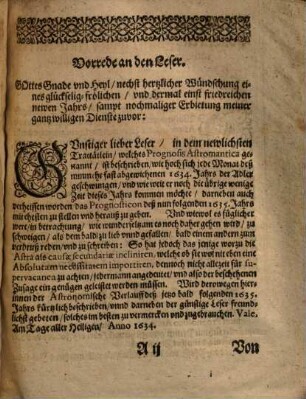 Vorrede an den Leser.
GOttes Gnade vnd Heyl / nechst hertzlicher Wündschung ei-
nes glückselig-frölichen / vnd dermal einst friedreichen
newen Jahrs / sampt nochmaliger Erbietung meiner
gantzwilligen Dienste zuvor:
GUnstiger lieber Leser / in dem newlichsten
Tractätlein / welches Prognosis Astromantica ge-
nannt / ist beschrieben / wie hoch sich jede Monat deß
nunmehr fast abgewichenen 1634. Jahrs der Adler
geschwungen / vnd wie weit er noch die übrige wenige
Zeit dieses Jahrs kommen möchte / darneben auch
verheissen worden das Prognosticon deß nun folgenden 1635. Jahrs
mit ehisten zu stellen vnd herauß zu geben. Vnd wiewol es füglicher
were / in betrachtung / wie wunderseltzam es noch daher gehen wird / zu
schweigen / als dem bald zu lieb vnnd gefallen bald einem andern zum
verdruß reden vnd zu schreiben: So hat jedoch das jenige worzu die
Astra als causæ secundariæ incliniren, welch ob sie wol nit eben eine
Absolutam necessitatem importiren, dennoch nicht allezeit für su-
pervacanea zu achten / jederman angedeutet / vnd also der beschehenen
Zusage ein genügen geleistet werden müssen. Wird derowegen hier-
innen der Astronomische Verlauff deß jetzo bald folgenden 1635.
Jahrs kürtzlich beschrieben / vnnd darneben der günstige Leser freund-
lichst gebeten / solches im besten zu vermercken vnd zugebrauchen. Vale.
Am Tage aller Heiligen / Anno 1634.
A ij
Von